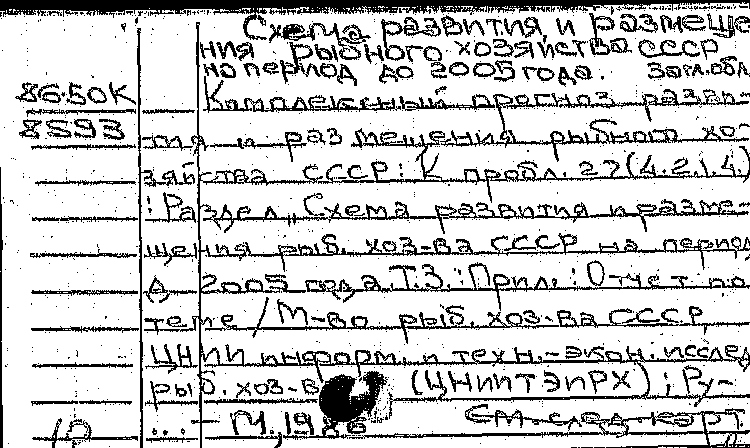 Схема развития и размеще
ния рыбного хозяйства СССР
на период до 2005 года. Загл.обл
86-50К Комплексный прогноз разви-
8593 тия и размещения рыбного хо-
зяйства СССР: К пробл. 27(4.2.1.4.)
: Раздел „Схема развития и разме-
щения рыб. хоз-ва СССР на период
д 2005 года. Т.3.: Прил.: Отчет по
теме / М-во рыб. хоз-ва СССР,
ЦНИИ информ. и техн.-экон. исслед
рыб. хоз-в (ЦНИИТЭИРХ) ; Ру-
... — М., 1986 См. след. карт